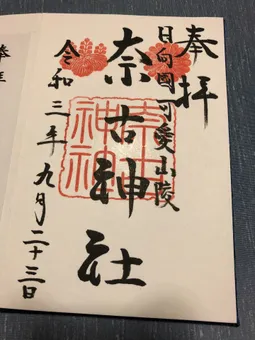 奉拝
日向國可愛山陵
奈古神社
令和三年九月二十三日
奈古神社
奉拝